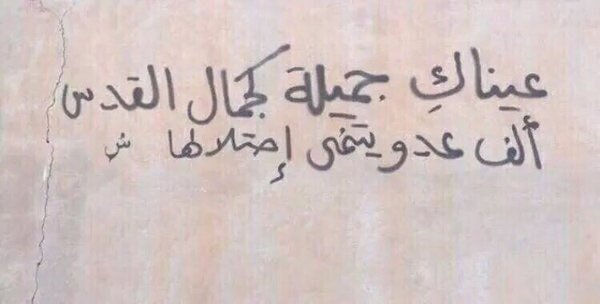 عيناكِ جميلة كجمال القدس
ألف عدو يتمنى إحتلالها ش